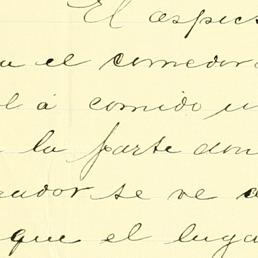 El aspec
el comedor
á comido
la parte don
ador se ve
que el luga